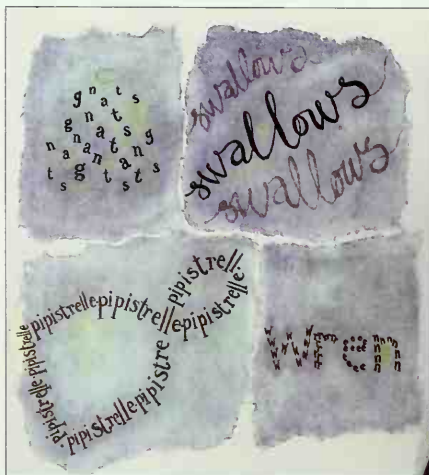 gnats
gnats
swallows
swallows
swallows
pipistrelle·
pipistrelle·pipistrelle
pipistrelle·
pipistrelle·pipistre
pipistrelle·pipistrelle
wren